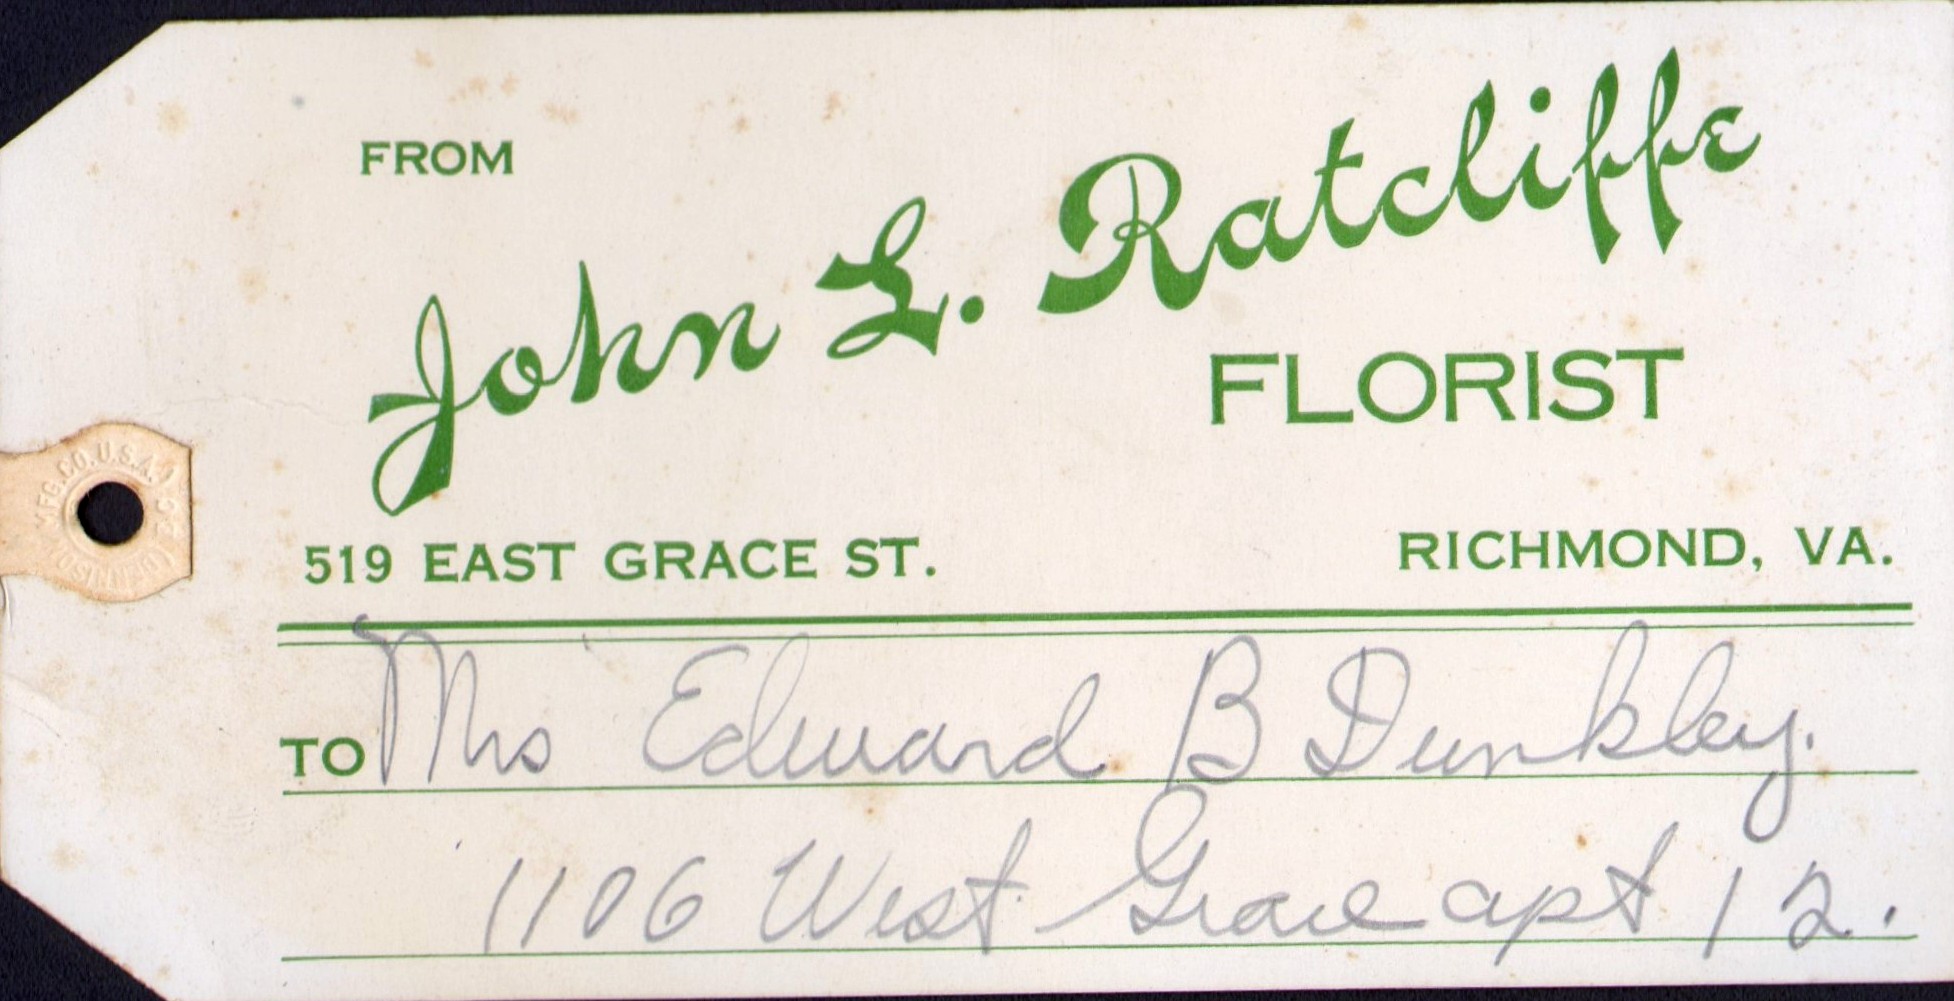 FROM
John L. Ratcliffe
FLORIST
519 EAST GRACE ST. RICHMOND, VA.
TO Mrs Edward B Dunkley.
1106 West Grace apt 12.
DENNISON MFG. CO. U.S.A.